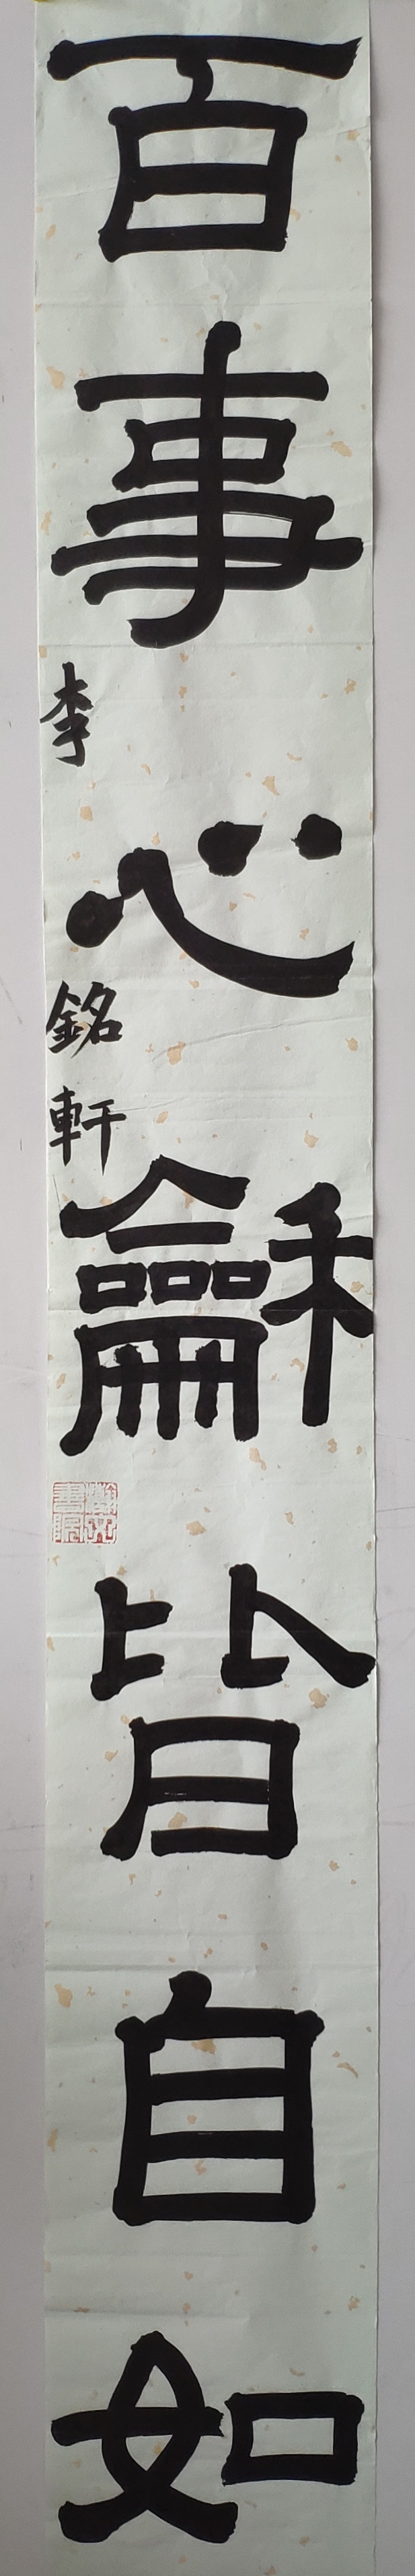 百事心龢皆自如
李銘軒